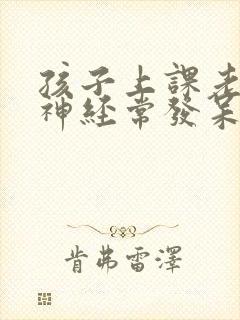 孩子上課走
神經常發呆
肯弗雷澤